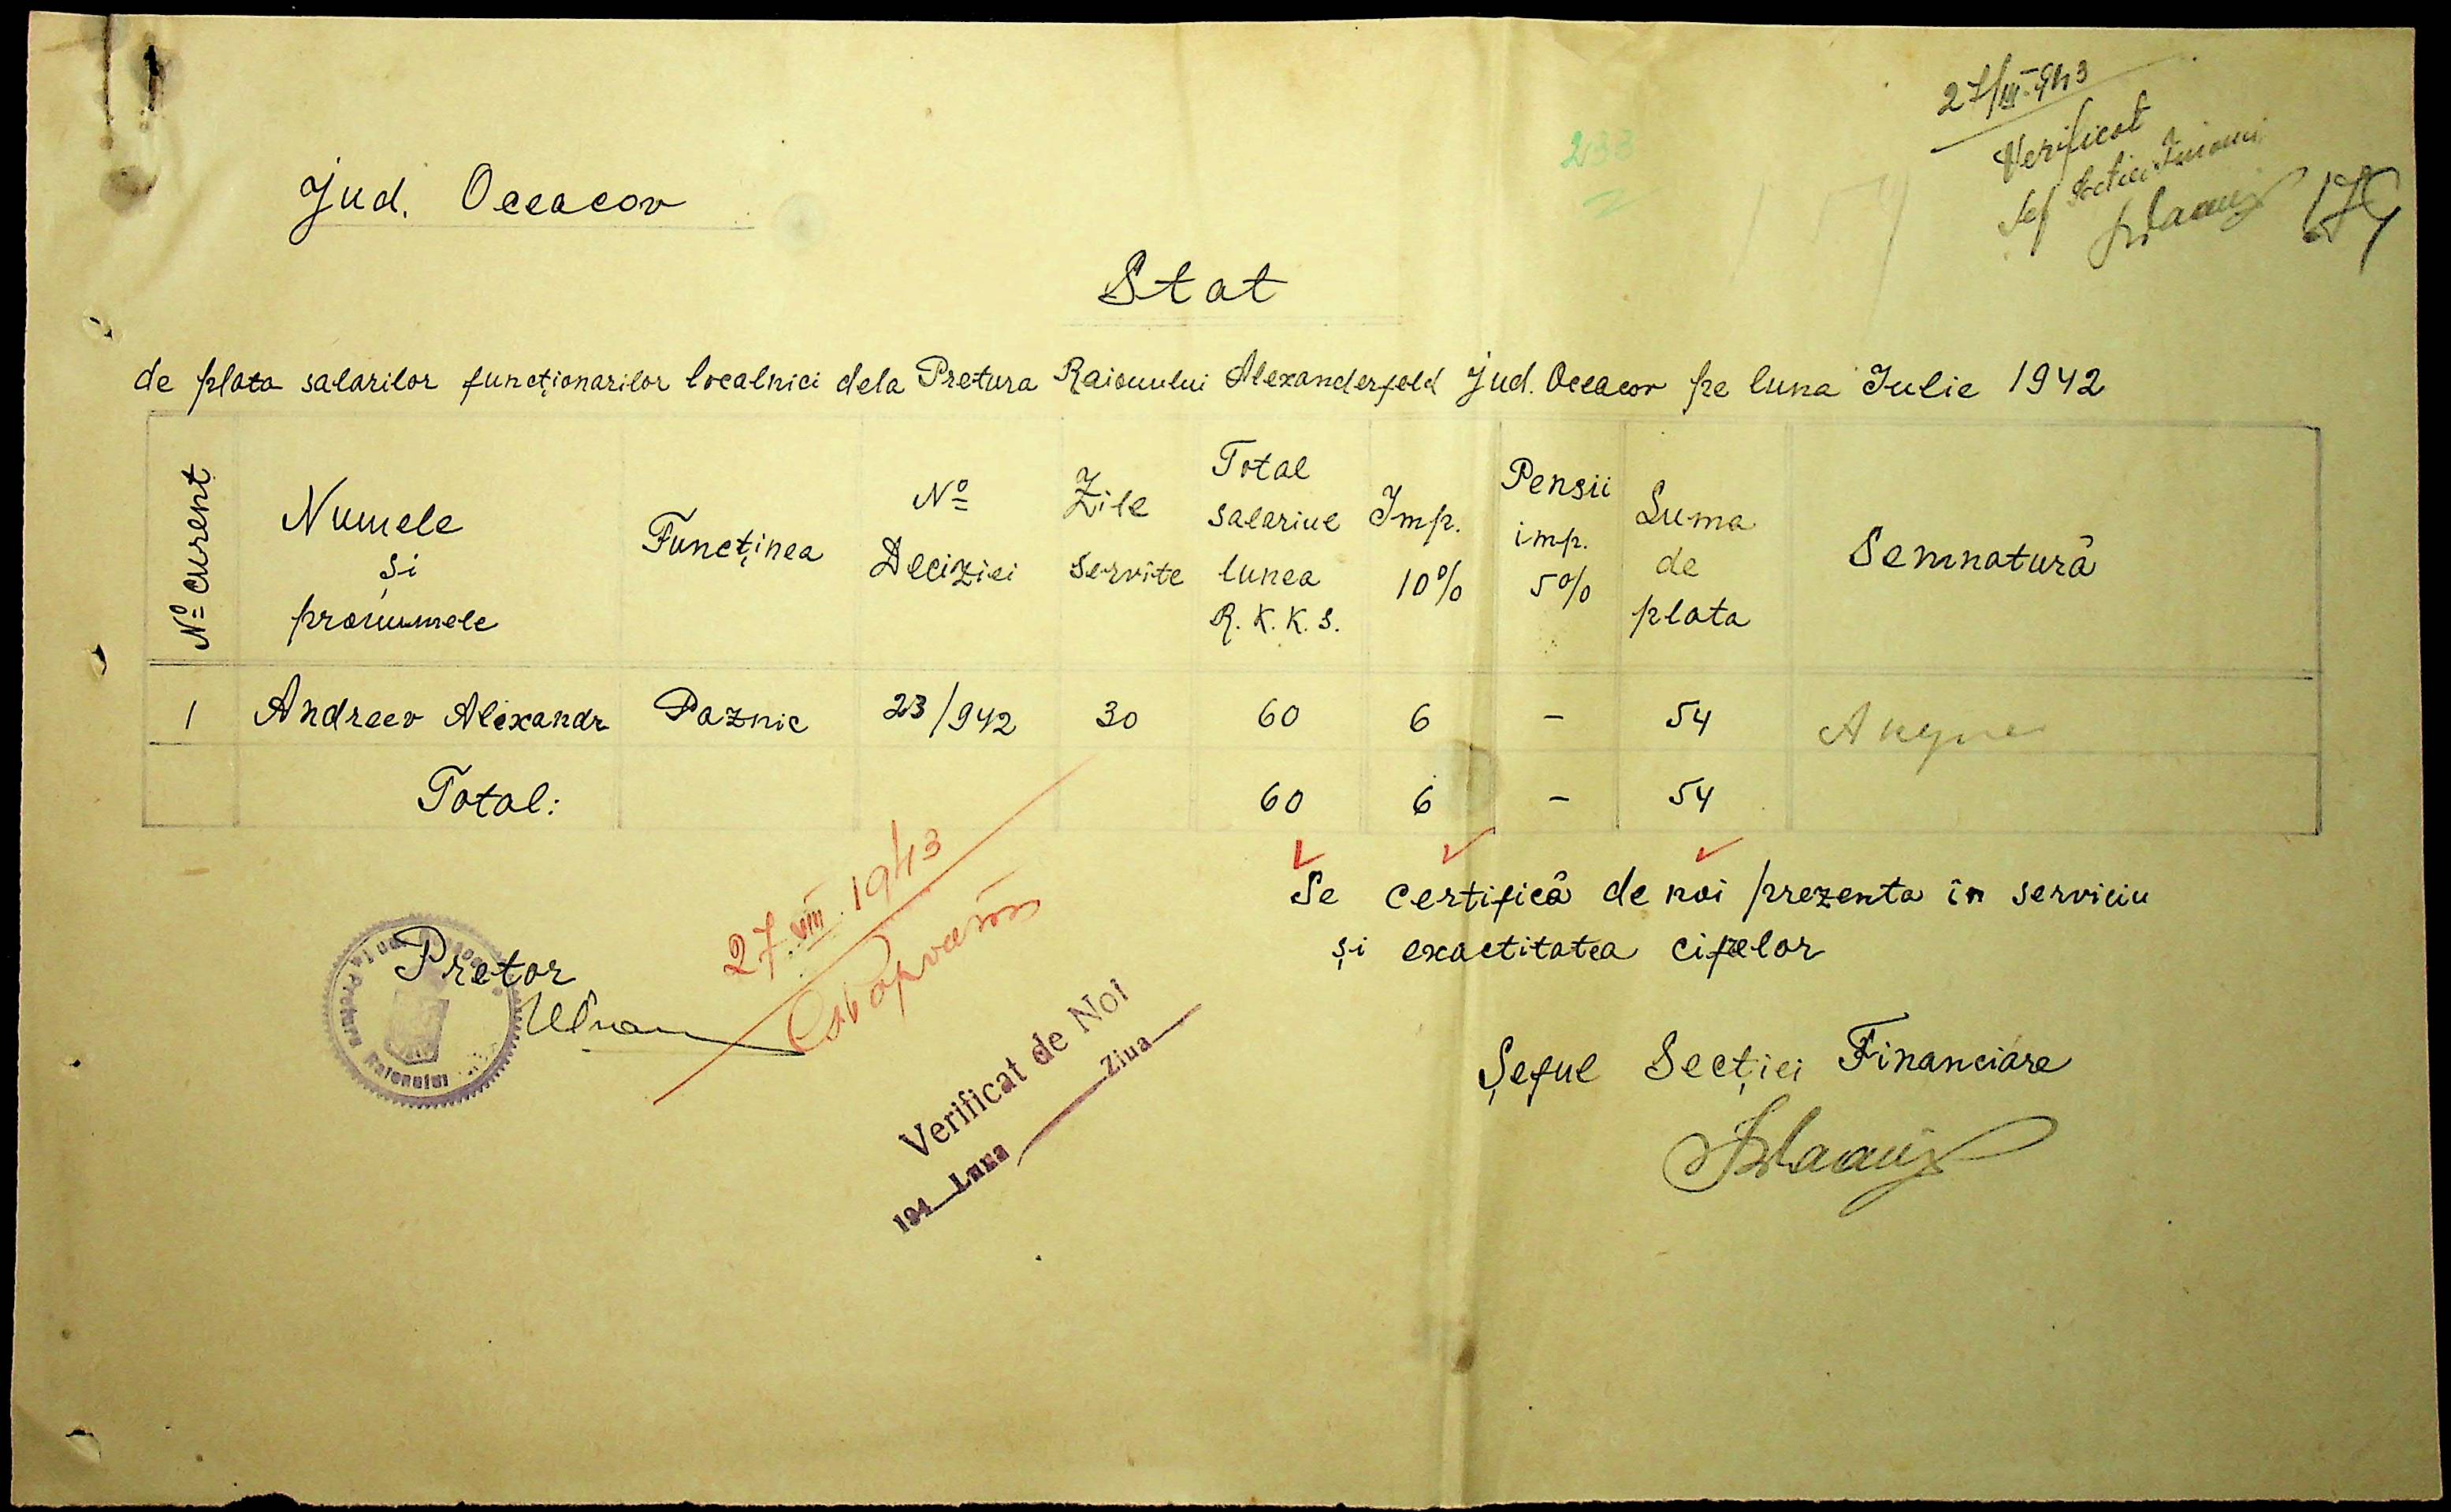 27/VIII-943
Verificat
Șef Secției
174
233
Jud. Oceacov
Stat
de plata salarilor funcționarilor localnici dela Pretura Raionului Alexanderfeld Jud. Oceacov pe luna Iulie 1942
Nº curent
Numele
și
pronumele
Funcținea
Nº
Deciziei
Zile
servite
Total
salariul
lunea
R. K. K. S.
Imp.
10%
Pensii
imp.
5%
Suma
de
plata
Semnatură
1 Andreev Alexandr Paznic 23/942 30 60 6 – 54
Total: 60 6 – 54
Se certifică de noi prezenta în serviciu
și exactitatea cifrelor
Pretor
Pretura Raionului
27.VIII.1943
Verificat de Noi
194 Luna Ziua
Șeful Secției Financiare